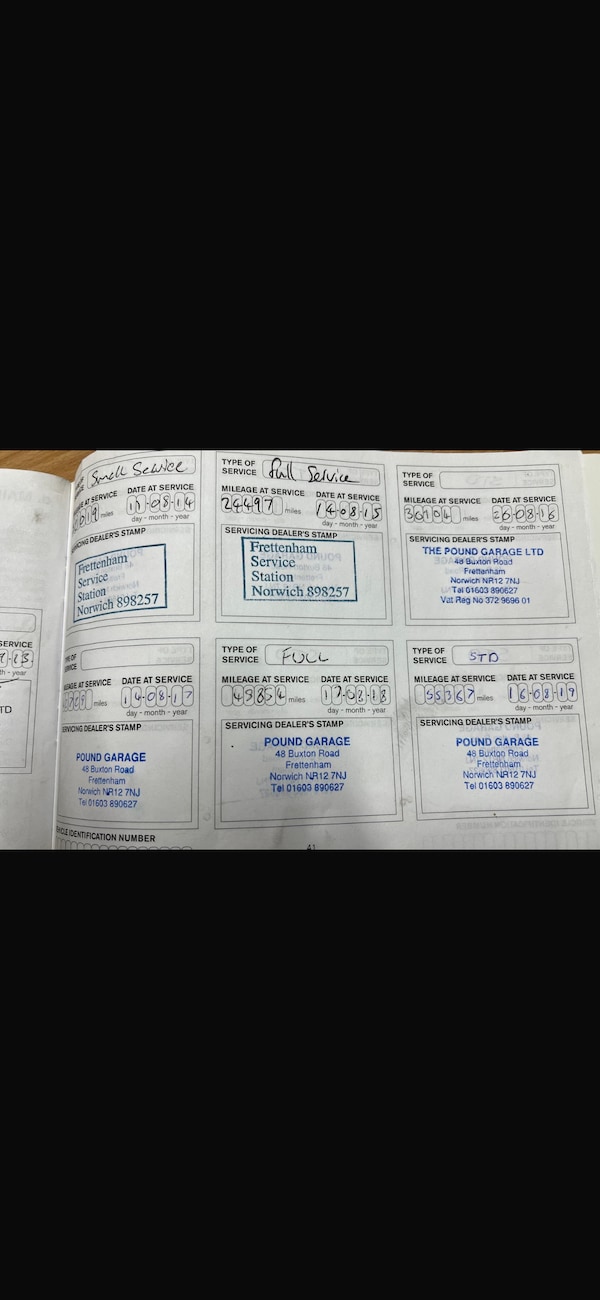 Small Service
AGE AT SERVICE DATE AT SERVICE
019 miles 11-08-14
day - month - year
SERVICING DEALER'S STAMP
Frettenham
Service
Station
Norwich 898257
TYPE OF
SERVICE Full Service
MILEAGE AT SERVICE DATE AT SERVICE
24497 miles 14-08-15
day - month - year
SERVICING DEALER'S STAMP
Frettenham
Service
Station
Norwich 898257
TYPE OF
SERVICE
MILEAGE AT SERVICE DATE AT SERVICE
30104 miles 26-08-16
day - month - year
SERVICING DEALER'S STAMP
THE POUND GARAGE LTD
48 Buxton Road
Frettenham
Norwich NR12 7NJ
Tel 01603 890627
Vat Reg No 372 9696 01
SERVICE
th - year
TD
OF
SERVICE
AGE AT SERVICE DATE AT SERVICE
miles 14-08-17
day - month - year
SERVICING DEALER'S STAMP
POUND GARAGE
48 Buxton Road
Frettenham
Norwich NR12 7NJ
Tel 01603 890627
TYPE OF
SERVICE FULL
MILEAGE AT SERVICE DATE AT SERVICE
49854 miles 17-08-18
day - month - year
SERVICING DEALER'S STAMP
POUND GARAGE
48 Buxton Road
Frettenham
Norwich NR12 7NJ
Tel 01603 890627
TYPE OF
SERVICE STD
MILEAGE AT SERVICE DATE AT SERVICE
55367 miles 16-08-19
day - month - year
SERVICING DEALER'S STAMP
POUND GARAGE
48 Buxton Road
Frettenham
Norwich NR12 7NJ
Tel 01603 890627
IDENTIFICATION NUMBER
41